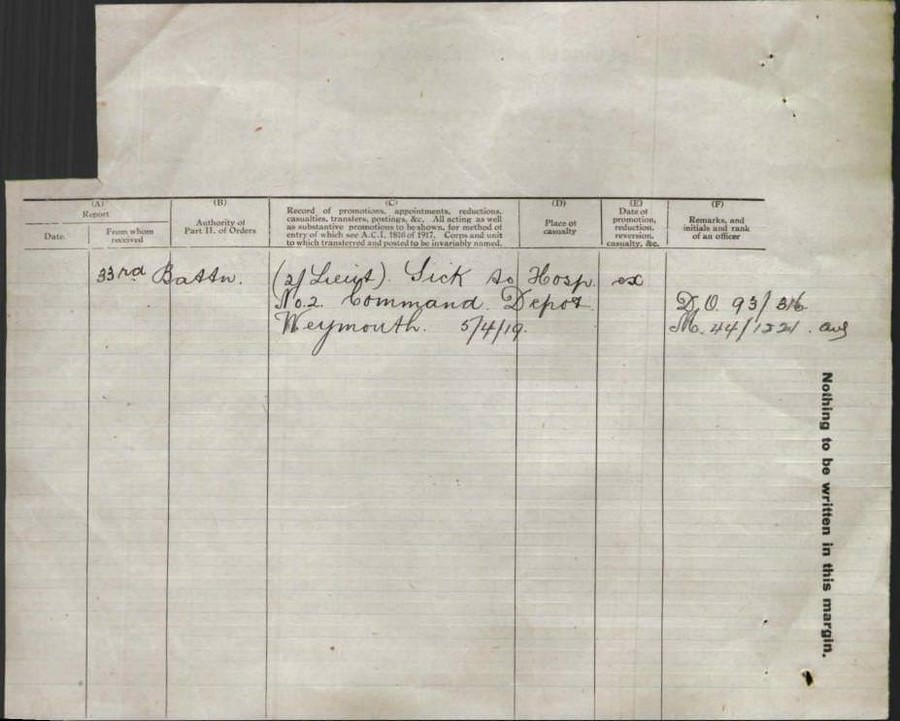 (A)
Report
(B)
(C)
(D)
(E)
(F)
Date.
From whom
received
Authority of
Part II. of Orders
Record of promotions, appointments, reductions,
casualties, transfers, postings, &c. All acting as well
as substantive promotions to be shown, for method of
entry of which see A.C.I. 1816 of 1917. Corps and unit
to which transferred and posted to be invariably named.
Place of
casualty
Date of
promotion,
reduction,
reversion,
casualty, &c.
Remarks, and
initials and rank
of an officer
33rd Battn. (2/Lieut). Sick to Hosp. ex
No.2. Command. Depot D.O. 93/316
Weymouth. 5/4/19. M. 44/1221.
Nothing to be written in this margin.